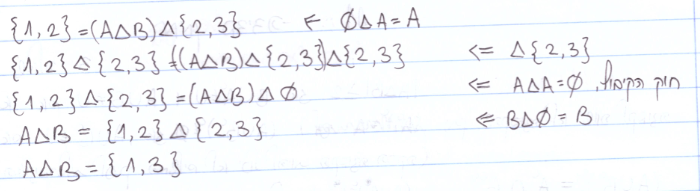 {1,2}=(AΔB)Δ{2,3} ⇐ ∅ΔA=A
{1,2}Δ{2,3}=((AΔB)Δ{2,3})Δ{2,3} <= Δ{2,3}
{1,2}Δ{2,3}=(AΔB)Δ∅ <= AΔA=∅, חוק הקיבוץ
AΔB = {1,2}Δ{2,3} ⇐ BΔ∅=B
AΔB = {1,3}